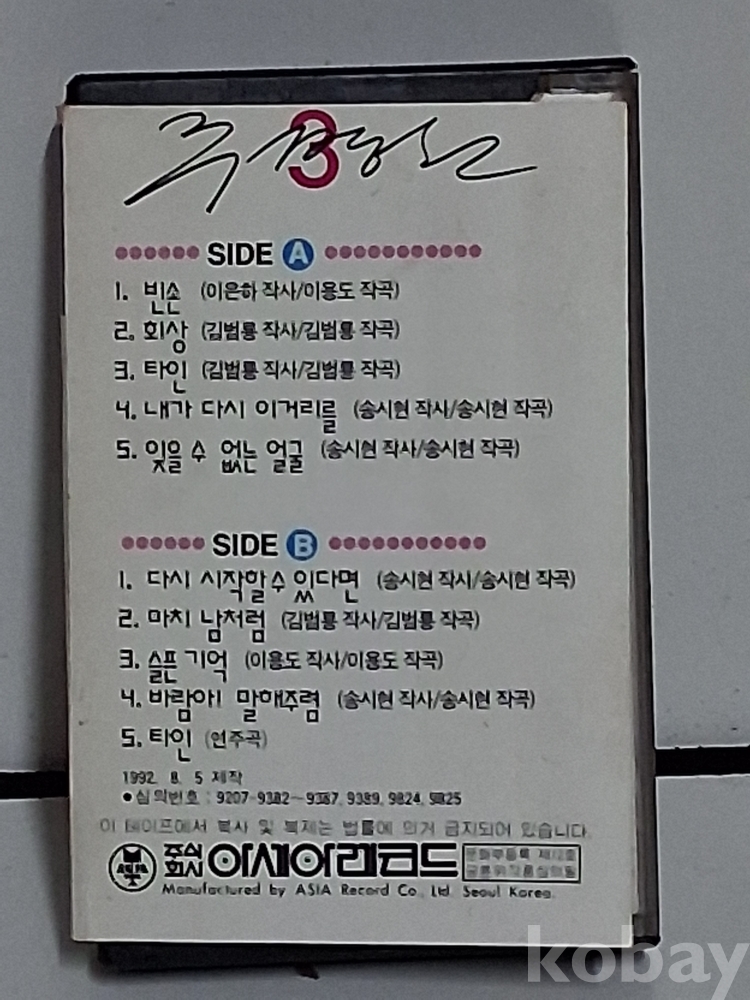 3
SIDE A
1. 빈손 (이은하 작사/이용도 작곡)
2. 회상 (김범룡 작사/김범룡 작곡)
3. 타인 (김범룡 작사/김범룡 작곡)
4. 내가 다시 이거리를 (송시현 작사/송시현 작곡)
5. 잊을 수 없는 얼굴 (송시현 작사/송시현 작곡)
SIDE B
1. 다시 시작할 수 있다면 (송시현 작사/송시현 작곡)
2. 마치 남처럼 (김범룡 작사/김범룡 작곡)
3. 슬픈 기억 (이용도 작사/이용도 작곡)
4. 바람아! 말해주렴 (송시현 작사/송시현 작곡)
5. 타인 (연주곡)
1992. 8. 5 제작
●심의번호 : 9207-9382~9387, 9389, 9824, 9825
이 테이프에서 복사 및 복제는 법률에 의거 금지되어 있습니다.
ASIA 주식회사 아세아레코드
Manufactured by ASIA Record Co., Ltd. Seoul Korea.
kobay